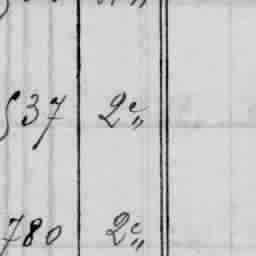 537 2e„
780 2e„